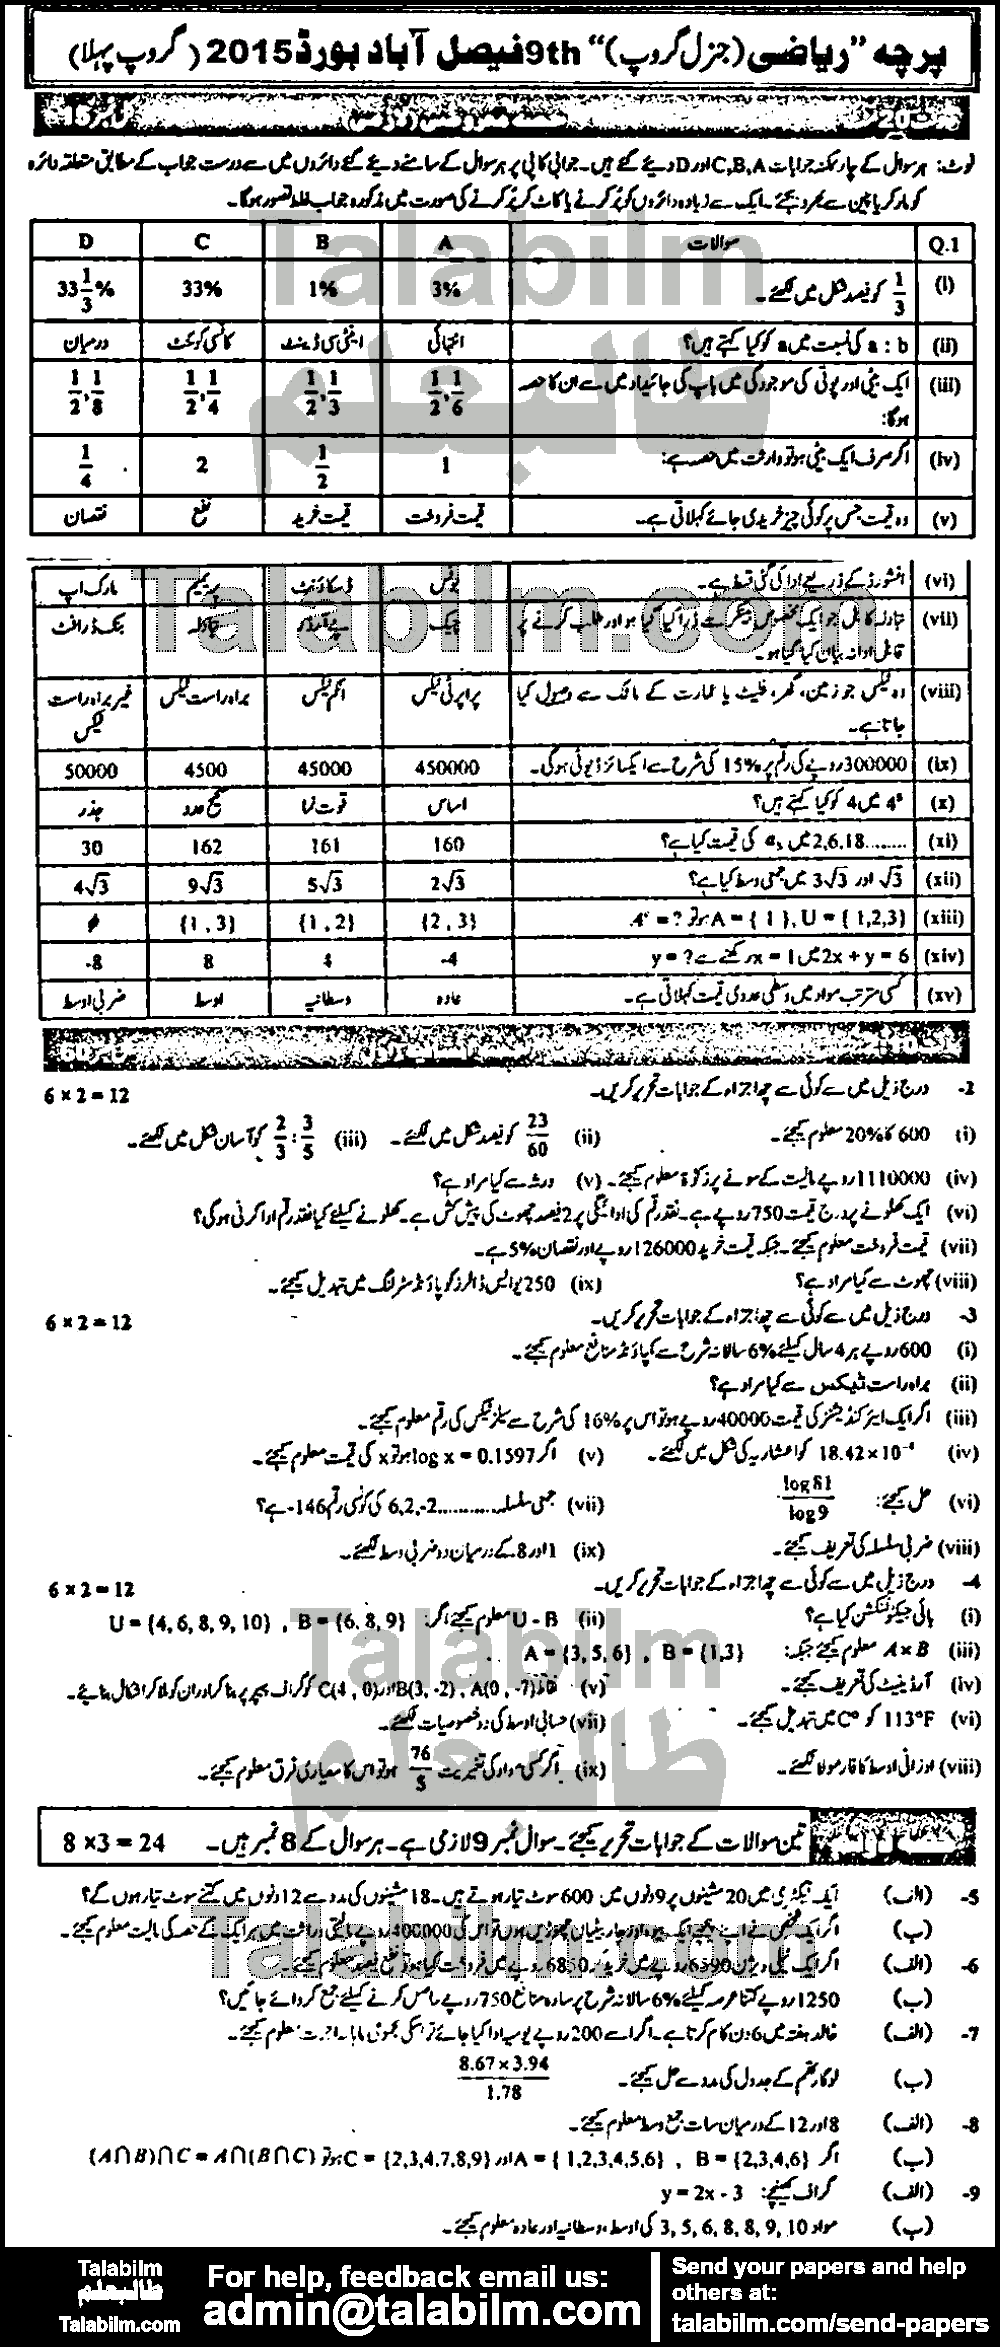 پرچہ "ریاضی (جنرل گروپ)" 9th فیصل آباد بورڈ 2015 (گروپ پہلا)
نوٹ: ہر سوال کے چار ممکنہ جوابات C,B,A اور D دیئے گئے ہیں۔ جوابی کاپی پر ہر سوال کے سامنے دیئے گئے دائروں میں سے درست جواب کے مطابق متعلقہ دائرہ
کو مارکر یا پین سے بھر دیجئے۔ ایک سے زیادہ دائروں کو پُر کرنے یا کاٹ کر پُر کرنے کی صورت میں مذکورہ جواب غلط تصور ہوگا۔
Q.1 سوالات A B C D
(i) 1/3 کو فیصد شکل میں لکھئے۔ 3% 1% 33% 33 1/3 %
(ii) a : b کی نسبت میں a کو کیا کہتے ہیں؟ انتہائی اینٹی سی ڈینٹ کانسی کوئنٹ درمیان
(iii) ایک بیٹی اور پوتی کی موجودگی میں باپ کی جائیداد میں سے ان کا حصہ ہوگا: 1/2, 1/6 1/2, 1/3 1/2, 1/4 1/2, 1/8
(iv) اگر صرف ایک بیٹی ہو تو وراثت میں حصہ ہے: 1 1/2 2 1/4
(v) وہ قیمت جس پر کوئی چیز خریدی جائے کہلاتی ہے۔ قیمت فروخت قیمت خرید نفع نقصان
(vi) انشورڈ کے ذریعے ادا کی گئی قسط ہے۔ بونس ڈسکاؤنٹ پریمیم مارک اپ
(vii) تبادلہ کا بل جو ایک مخصوص بینکر سے ڈرا کیا گیا ہو اور طلب کرنے پر قابل ادا نہ بیان کیا گیا ہو۔ چیک پے آرڈر تبادلہ بنک ڈرافٹ
(viii) وہ ٹیکس جو زمین، گھر، فلیٹ یا عمارت کے مالک سے وصول کیا جاتا ہے۔ پراپرٹی ٹیکس انکم ٹیکس براہ راست ٹیکس غیر براہ راست ٹیکس
(ix) 300000 روپے کی رقم پر 15% کی شرح سے ایکسائز ڈیوٹی ہوگی۔ 450000 45000 4500 50000
(x) میں 4 کو کیا کہتے ہیں؟ اساس قوت نما صحیح عدد جذر
(xi) 2,6,18........ میں a₅ کی قیمت کیا ہے؟ 160 161 162 30
(xii) √3 اور 3√3 میں جمعی وسط کیا ہے؟ 2√3 5√3 9√3 4√3
(xiii) A = { 1 }, U = { 1,2,3} ہو تو ? = Aᶜ {2 , 3} {1 , 2} {1 , 3} ϕ
(xiv) 2x + y = 6 میں x = 1 رکھنے سے y = ? -4 4 8 -8
(xv) کسی مرتب مواد میں وسطی عددی قیمت کہلاتی ہے۔ عادہ وسطانیہ اوسط ضربی اوسط
2- درج ذیل میں سے کوئی سے چھ اجزاء کے جوابات تحریر کریں۔ 6 × 2 = 12
(i) 600 کا 20% معلوم کیجئے۔ (ii) 23/60 کو فیصد شکل میں لکھئے۔ (iii) 2/3 : 3/5 کو آسان شکل میں لکھئے۔
(iv) 1110000 روپے مالیت کے سونے پر زکوٰۃ معلوم کیجئے۔ (v) ورثہ سے کیا مراد ہے؟
(vi) ایک کھلونے پر درج قیمت 750 روپے ہے۔ نقد رقم کی ادائیگی پر 2 فیصد چھوٹ کی پیش کش ہے۔ کھلونے کیلئے کیا نقد رقم ادا کرنی ہوگی؟
(vii) قیمت فروخت معلوم کیجئے۔ جبکہ قیمت خرید 126000 روپے اور نقصان 5% ہے۔
(viii) چھوٹ سے کیا مراد ہے؟ (ix) 250 یو ایس ڈالرز کو پاؤنڈ سٹرلنگ میں تبدیل کیجئے۔
3- درج ذیل میں سے کوئی سے چھ اجزاء کے جوابات تحریر کریں۔ 6 × 2 = 12
(i) 600 روپے پر 4 سال کیلئے 6% سالانہ شرح سے کمپاؤنڈ منافع معلوم کیجئے۔
(ii) براہ راست ٹیکس سے کیا مراد ہے؟
(iii) اگر ایک ایئر کنڈیشنز کی قیمت 40000 روپے ہو تو اس پر 16% کی شرح سے سیلز ٹیکس کی رقم معلوم کیجئے۔
(iv) 18.42×10⁻⁴ کو اعشاریہ کی شکل میں لکھئے۔ (v) اگر log x = 0.1597 ہو تو x کی قیمت معلوم کیجئے۔
(vi) حل کیجئے: log 81 / log 9 (vii) جمعی سلسلہ 6,2,-2............ کی کونسی رقم 146- ہے؟
(viii) ضربی سلسلہ کی تعریف کیجئے۔ (ix) 1 اور 8 کے درمیان دو ضربی وسط لکھئے۔
4- درج ذیل میں سے کوئی سے چھ اجزاء کے جوابات تحریر کریں۔ 6 × 2 = 12
(i) بائی جیکٹو فنکشن کیا ہے؟ (ii) U - B معلوم کیجئے اگر: U = {4, 6, 8, 9, 10} , B = {6, 8, 9}
(iii) A×B معلوم کیجئے جبکہ: A = {3, 5, 6} , B = {1,3}
(iv) آرڈینیٹ کی تعریف کیجئے۔ (v) نقاط A(0 , -7) , B(3, -2) اور C(4 , 0) کو گراف پیپر پر بنا کر اور ان کو ملا کر اشکال بنایئے۔
(vi) 113°F کو C° میں تبدیل کیجئے۔ (vii) حسابی اوسط کی دو خصوصیات لکھئے۔
(viii) اوزانی اوسط کا فارمولا لکھئے۔ (ix) اگر کسی مواد کی تغیریت 76/5 ہو تو اس کا معیاری فرق معلوم کیجئے۔
تین سوالات کے جوابات تحریر کیجئے۔ سوال نمبر 9 لازمی ہے۔ ہر سوال کے 8 نمبر ہیں۔ 8 ×3 = 24
5- (الف) ایک فیکٹری میں 20 مشینوں پر 9 دنوں میں 600 سوٹ تیار ہوتے ہیں۔ 18 مشینوں کی مدد سے 12 دنوں میں کتنے سوٹ تیار ہوں گے؟
(ب) اگر ایک شخص نے اپنے پیچھے ایک بیوہ اور چار بیٹیاں چھوڑیں ہوں تو اس کی 400000 روپے مالیتی وراثت میں ہر ایک کے حصہ کی مالیت معلوم کیجئے۔
6- (الف) اگر ایک ٹیلی ویژن 6390 روپے میں خرید کر 6850 روپے میں فروخت کیا ہو تو نفع فیصد معلوم کیجئے۔
(ب) 1250 روپے کتنا عرصہ کیلئے 6% سالانہ شرح پر سادہ منافع 750 روپے حاصل کرنے کیلئے جمع کروائے جائیں؟
7- (الف) خالد ہفتہ میں 6 دن کام کرتا ہے۔ اگر اسے 200 روپے یومیہ ادا کیا جائے تو اسکی مجموعی ماہانہ اجرت معلوم کیجئے۔
(ب) لوگارتھم کے جدول کی مدد سے حل کیجئے۔ 8.67 × 3.94 / 1.78
8- (الف) 8 اور 12 کے درمیان سات جمع وسط معلوم کیجئے۔
(ب) اگر A = { 1,2,3,4,5,6} , B = {2,3,4,6} اور C = {2,3,4,7,8,9} ہو تو (A∩B)∩C = A∩(B∩C)
9- (الف) گراف کھینچئے: y = 2x - 3
(ب) مواد 3, 5, 6, 8, 8, 9, 10 کی اوسط، وسطانیہ اور عادہ معلوم کیجئے۔
Talabilm
طالبعلم
Talabilm.com
For help, feedback email us:
admin@talabilm.com
Send your papers and help
others at:
talabilm.com/send-papers